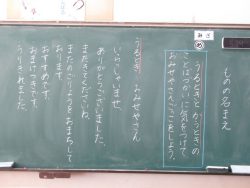 みさ
ものの名まえ
うるときとかうときの
ことばづかいに気をつけて、
おみせやさんごっこをしよう。
うるとき おみせやさん
いらっしゃいませ。
ありがとうございました。
またきてくださいね。
またのごりようをおまちして
おります。
おすすめです。
おまけつきです。
うりきれました。